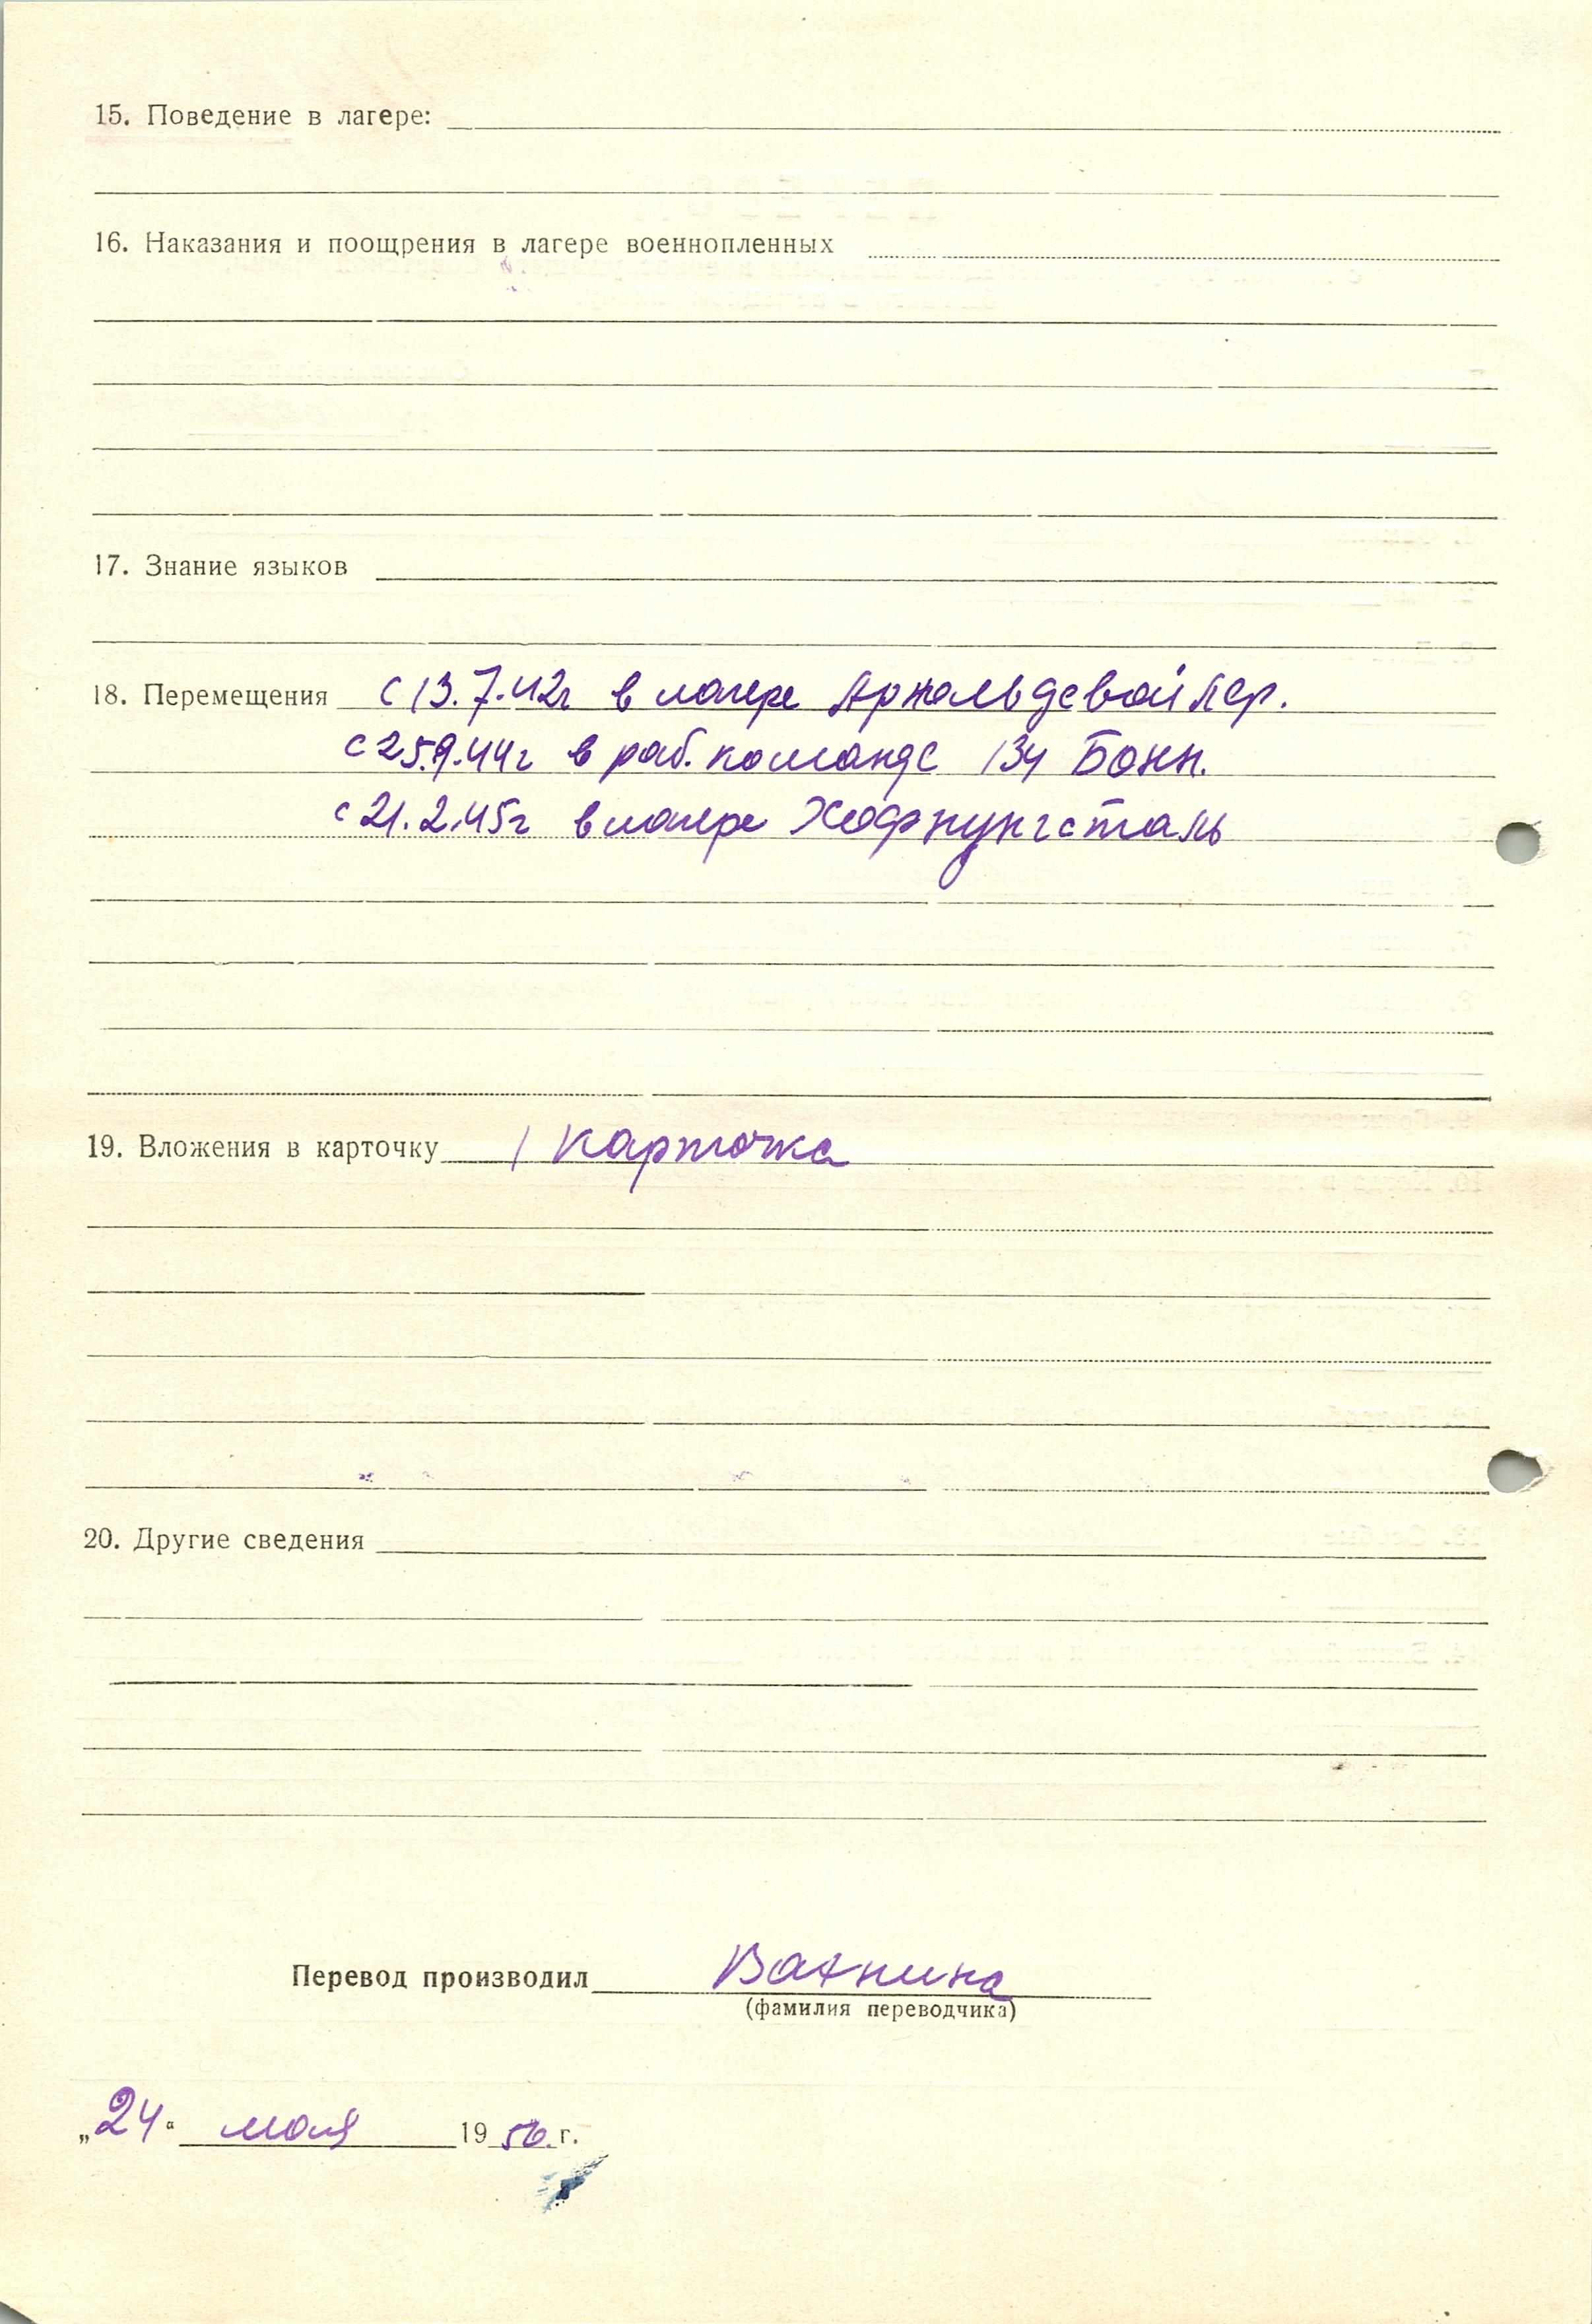 15. Поведение в лагере:
16. Наказания и поощрения в лагере военнопленных
17. Знание языков
18. Перемещения с 13.7.42г в лагере Арнольдсвайлер.
с 25.9.44г в раб. команде 134 Бонн.
с 21.2.45г в лагере Хофнунгсталь
19. Вложения в карточку 1 карточка
20. Другие сведения
Перевод производил Вахнина
(фамилия переводчика)
„24“ мая 1956 г.